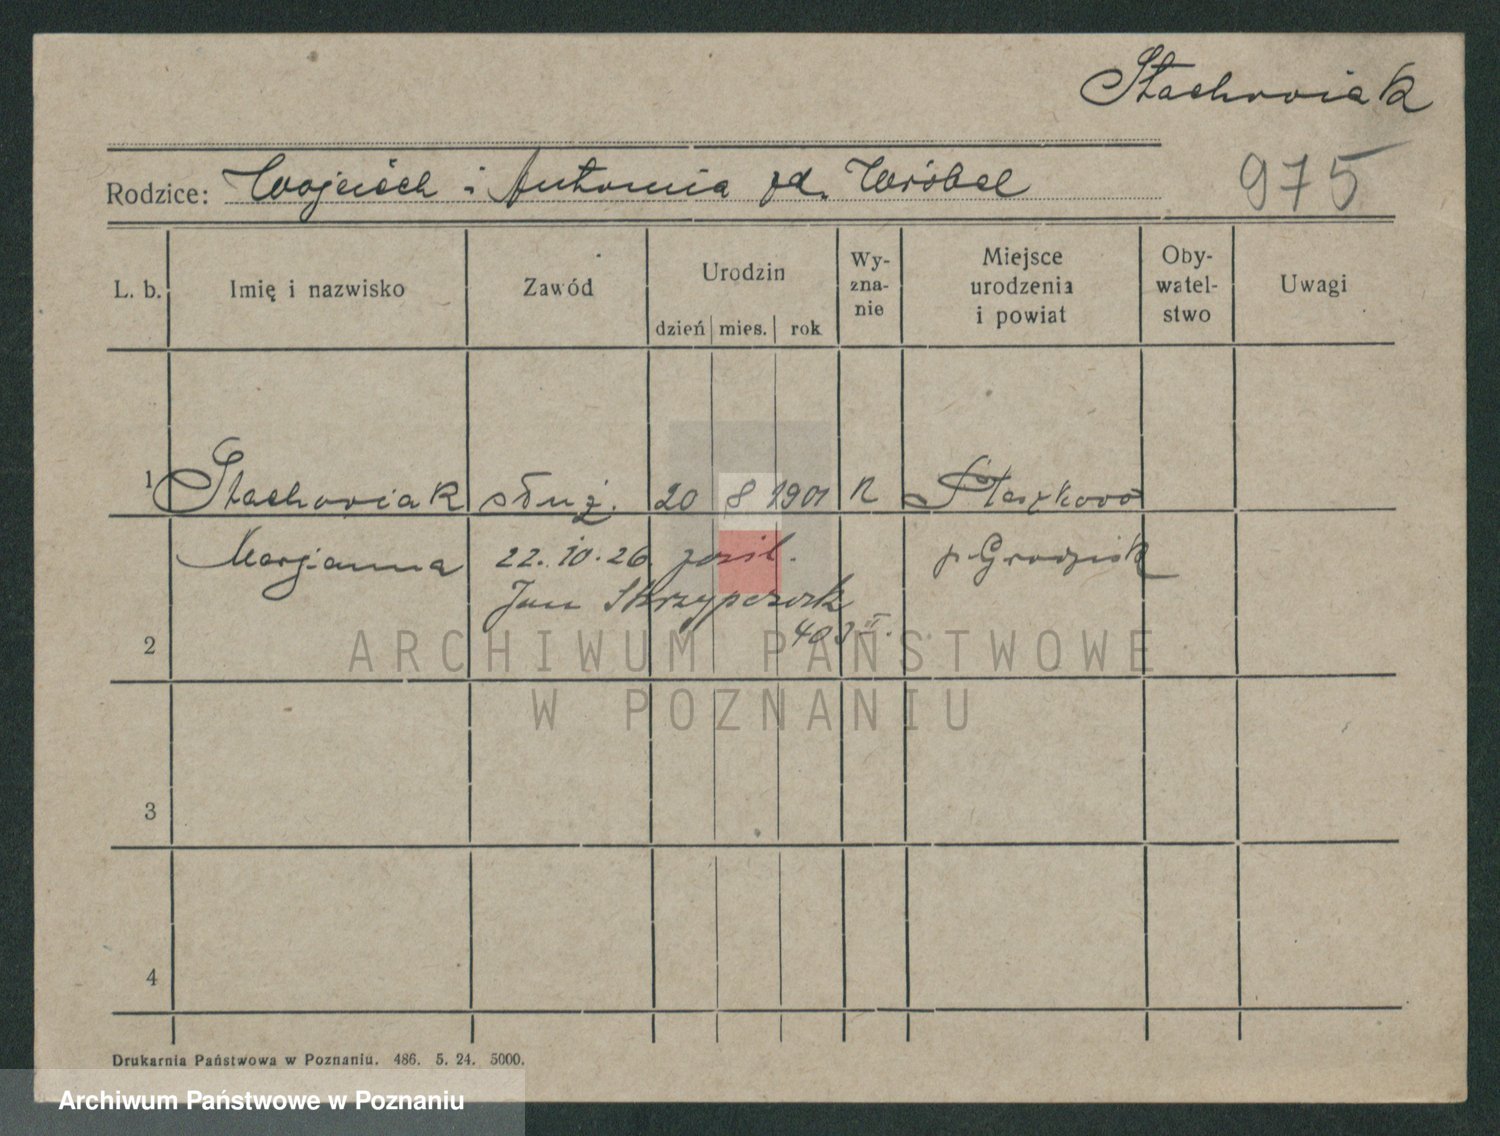 Stachowiak
Rodzice: Wojciech i Antonia zd. Wróbel
975
L. b.
Imię i nazwisko
Zawód
Urodzin
dzień mies. rok
Wy-
zna-
nie
Miejsce
urodzenia
i powiat
Oby-
watel-
stwo
Uwagi
1 Stachowiak służ. 20 8 1901 R Ptaszkowo
Marjanna 22.10.26 zośl. p. Grodzisk
Jan Skrzypczak
403 II.
2
3
4
ARCHIWUM PAŃSTWOWE
W POZNANIU
Drukarnia Państwowa w Poznaniu. 486. 5. 24. 5000.
Archiwum Państwowe w Poznaniu